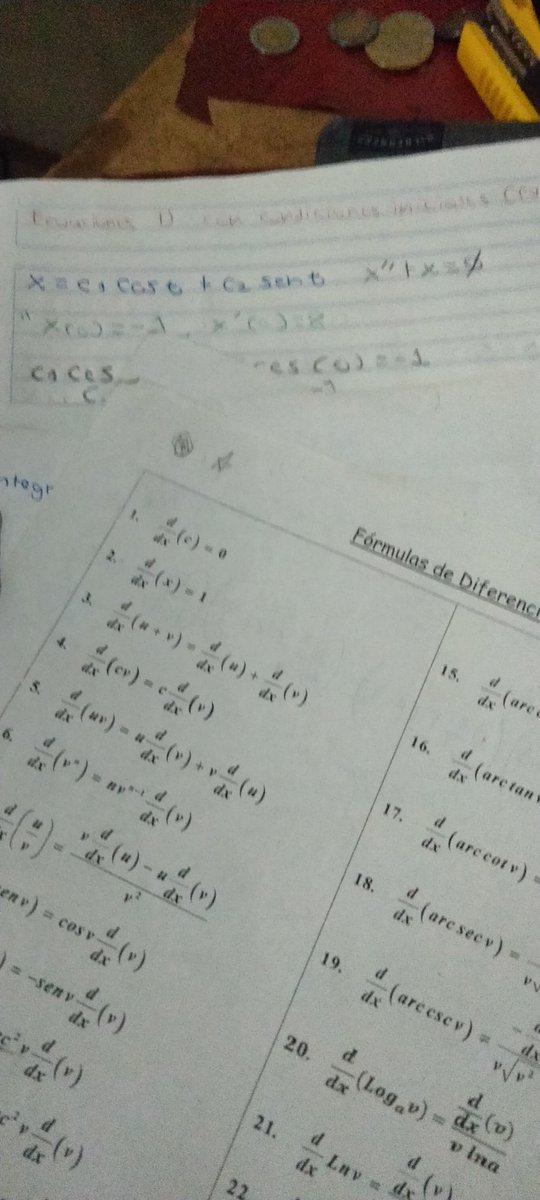 con condiciones iniciales
x = c1 cos t + c2 sen t x'' + x = 0
x(0) = -1, x'(0) = 8
c1 cos
(0) = -1
-1
c
integr
Fórmulas de Diferenci
1. d/dx (c) = 0
2. d/dx (x) = 1
3. d/dx (u + v) = d/dx (u) + d/dx (v)
4. d/dx (cv) = c d/dx (v)
5. d/dx (uv) = u d/dx (v) + v d/dx (u)
6. d/dx (vⁿ) = nvⁿ⁻¹ d/dx (v)
d/dx (u/v) = (v d/dx (u) - u d/dx (v)) / v²
env) = cosv d/dx (v)
) = -senv d/dx (v)
c²v d/dx (v)
c²v d/dx (v)
15. d/dx (arc
16. d/dx (arctan v
17. d/dx (arc cot v) =
18. d/dx (arc sec v) =
v√
19. d/dx (arc csc v) = - d/dx / v√v²
20. d/dx (Logₐv) = d/dx (v) / v lna
21. d/dx Lnv = d/dx (v)
22